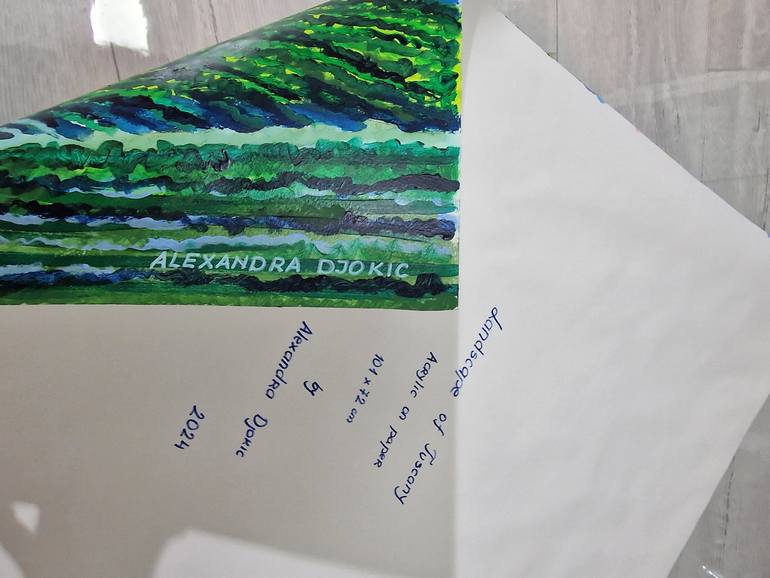 ALEXANDRA DJOKIC
Landscape of Tuscany
Acrylic on paper
101 x 72 cm
by
Alexandra Djokic
2024